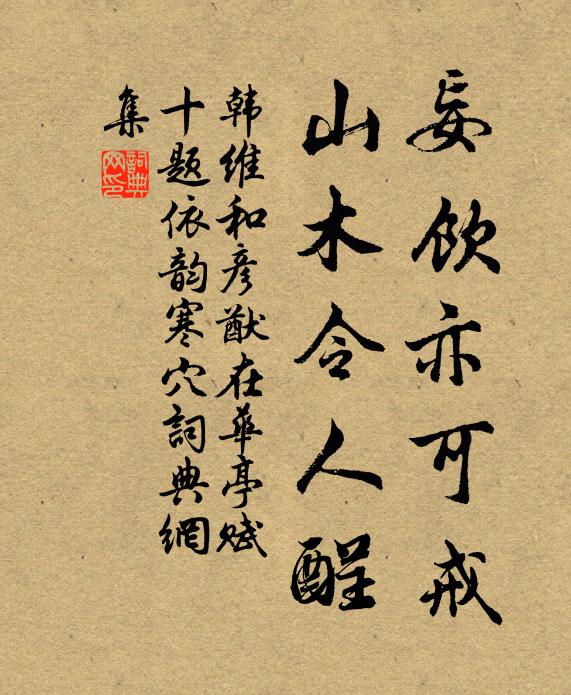 妄饮亦可戒
山木令人醒
韩维和彦猷在華亭赋
十题依韵寒穴詞典網
集
詞典
网印